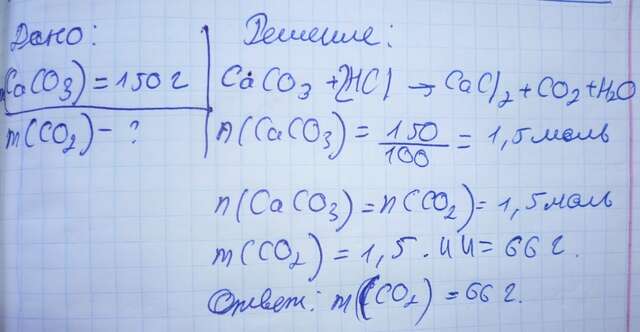 Дано:
m(CaCO3) = 150 г
m(CO2) - ?
Решение:
CaCO3 + 2HCl → CaCl2 + CO2 + H2O
n(CaCO3) = 150/100 = 1,5 моль
n(CaCO3) = n(CO2) = 1,5 моль
m(CO2) = 1,5 · 44 = 66 г.
Ответ: m(CO2) = 66 г.